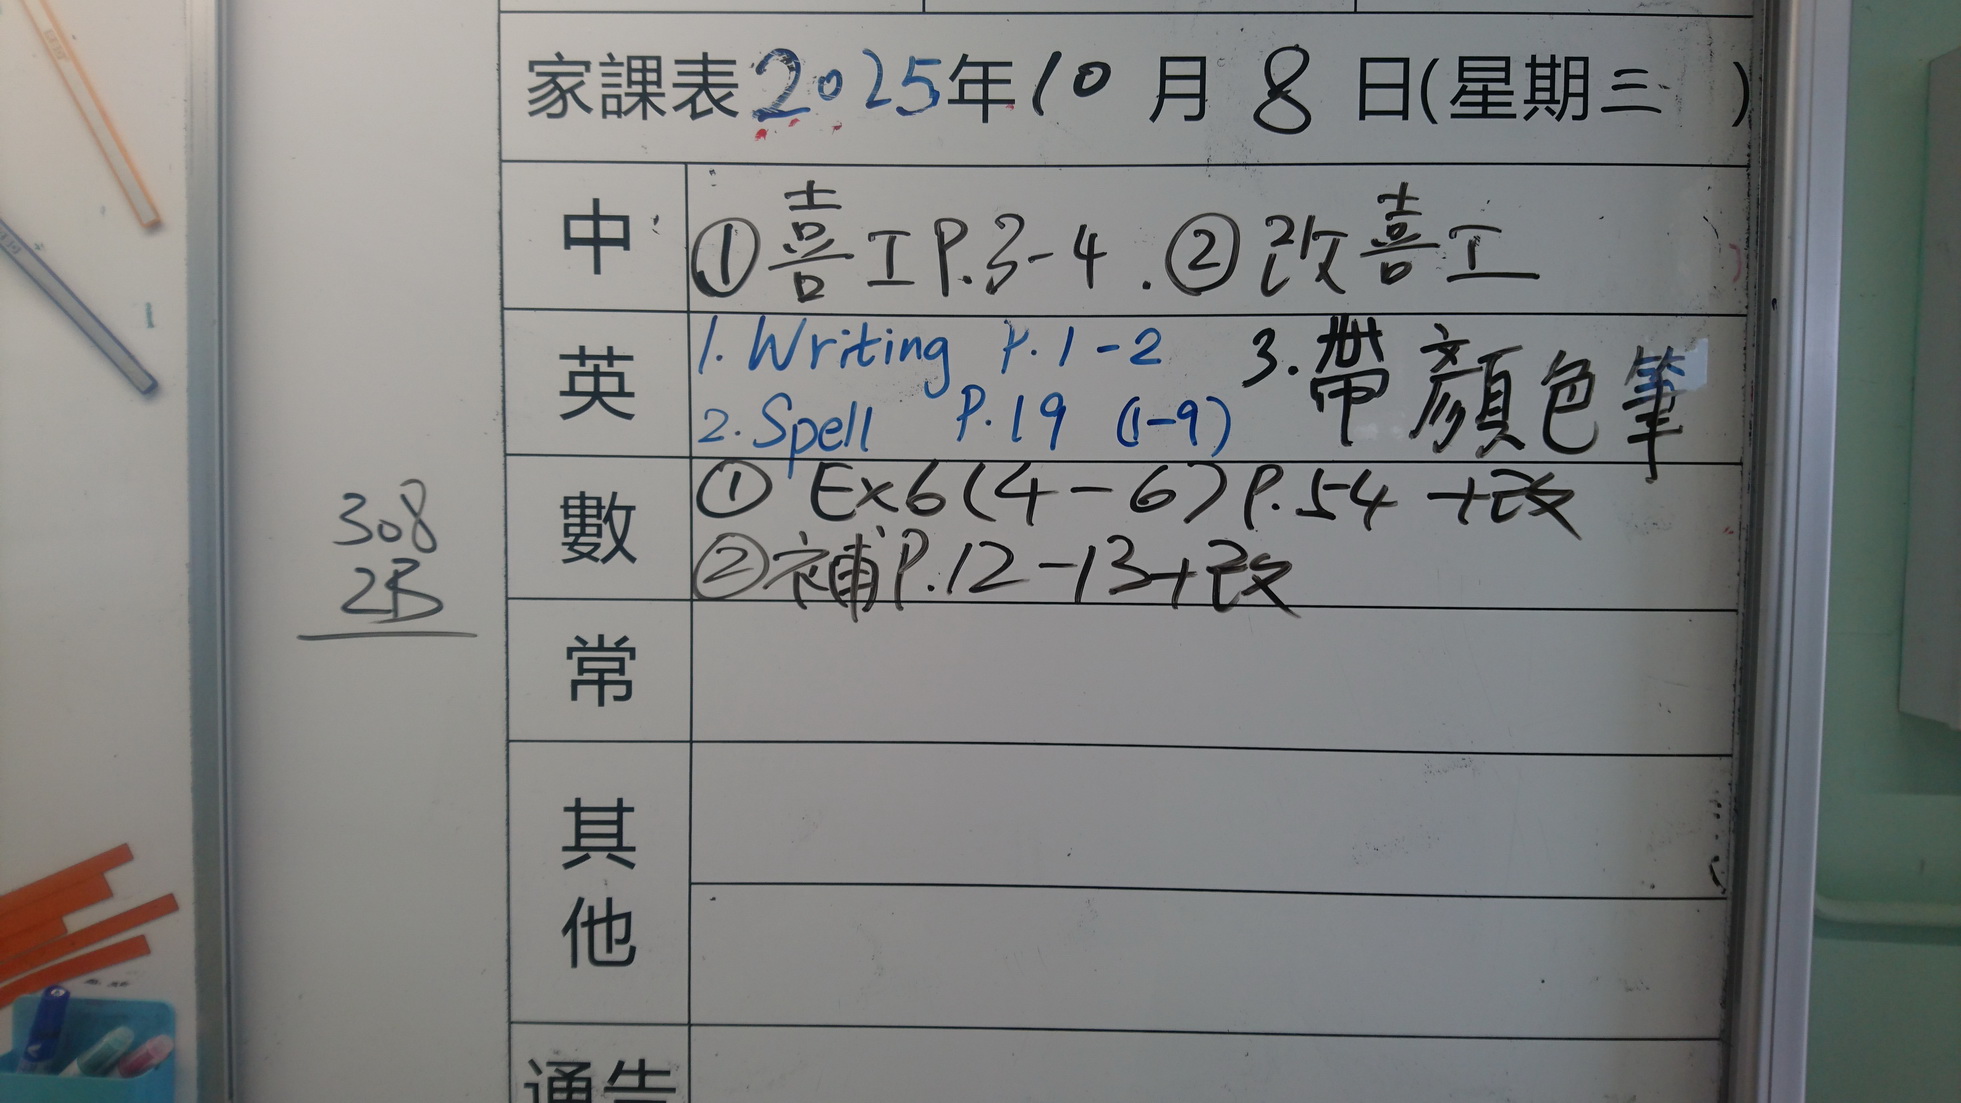 家課表2025年10月8日(星期三)
中 ①喜工P.3-4. ②改喜工
英 1. Writing P.1-2 3. 帶顏色筆
2. Spell P.19 (1-9)
數 ① Ex6(4-6)P.54 +改
②補P.12-13+改
308
2B
常
其他
通告